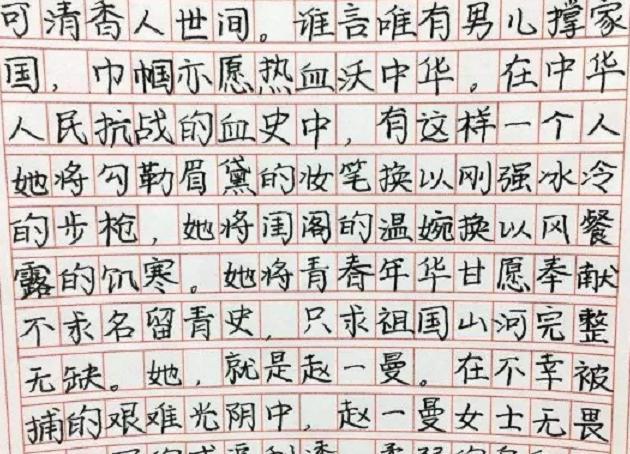 可清香人世间。谁言唯有男儿撑家
国，巾帼亦愿热血沃中华。在中华
人民抗战的血史中，有这样一个人
她将勾勒眉黛的妆笔换以刚强冰冷
的步枪，她将闺阁的温婉换以风餐
露的饥寒。她将青春年华甘愿奉献
不求名留青史，只求祖国山河完整
无缺。她，就是赵一曼。在不幸被
捕的艰难光阴中，赵一曼女士无畏